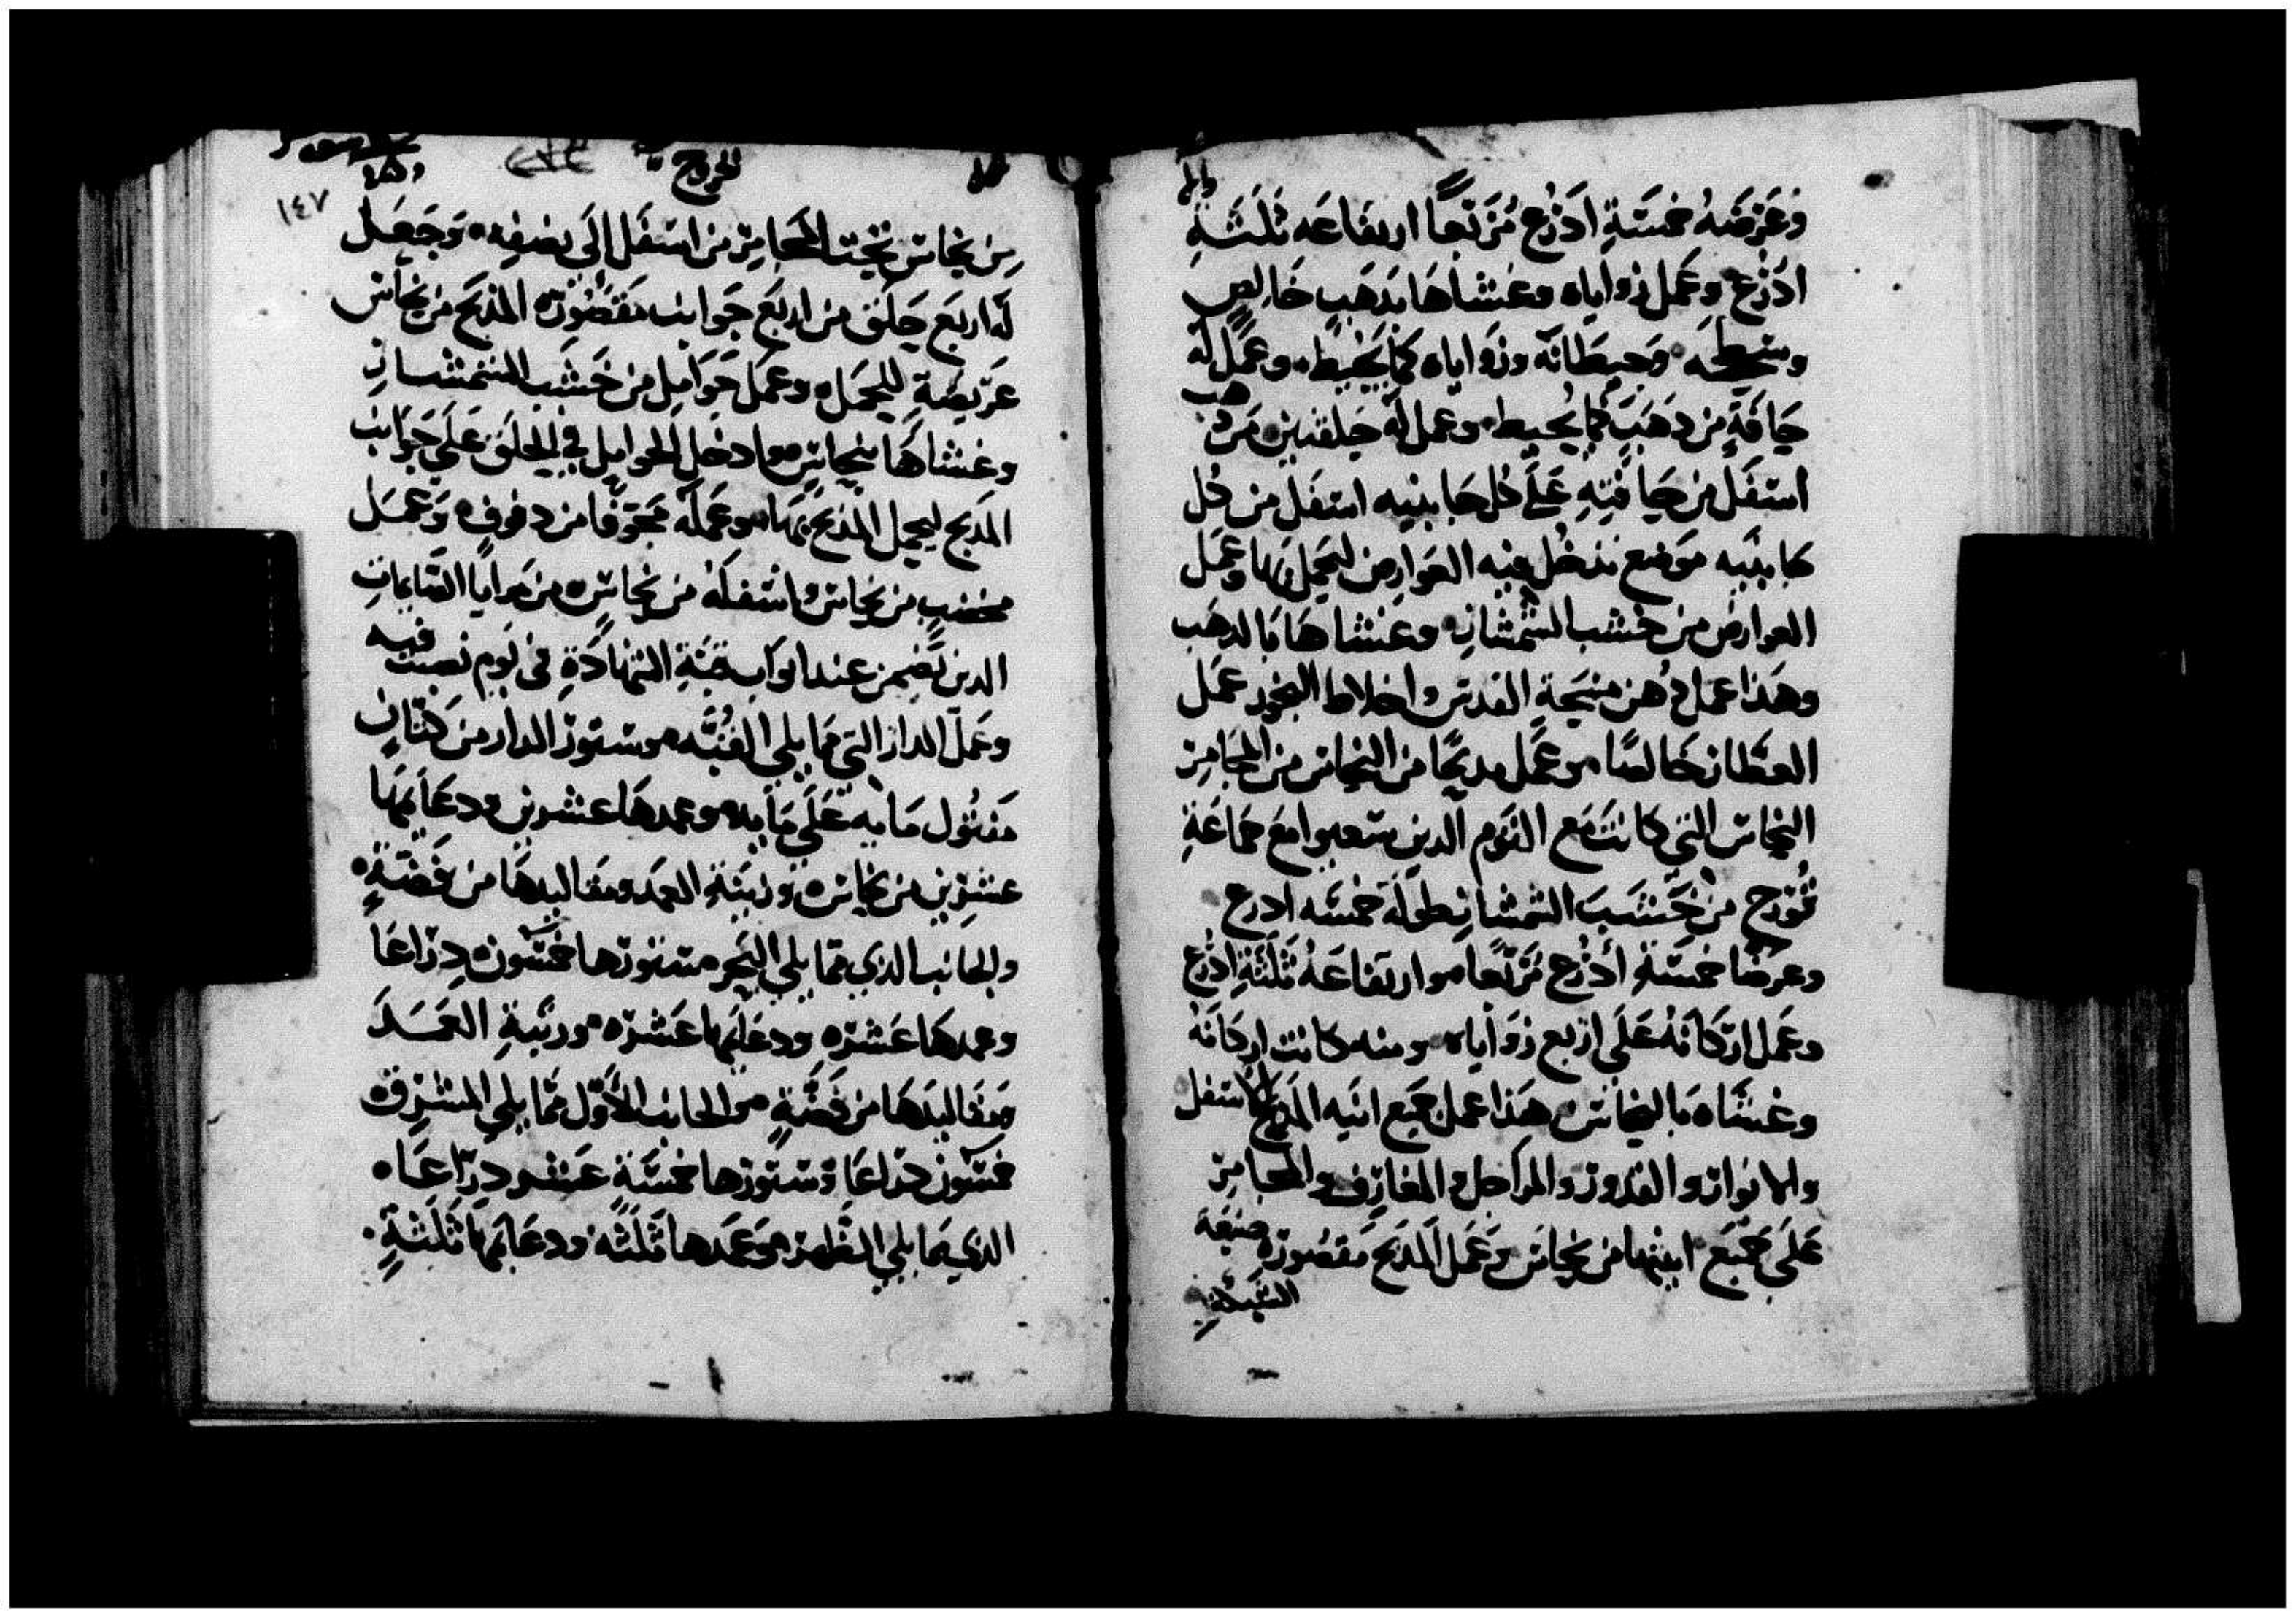 وعرضه خمسة ادرع مربعا ارتفاعه ثلثة
ادرع وعمل زواياه وغشاها بدهب خالص
وسطحه وحيطانه وزواياه كما يحيط وعمل له
حافة من دهب كما يحيط وعمل له حلقتين من دهب
اسفل من حافتيه على كل جانبيه اسفل من كل
جانبيه موضع تدخل فيه العوارض ليحمل بها وعمل
العوارض من خشب الشمشار وغشاها بالدهب
وهدا عمل دهن مسحة القدس واخلاط البخور عمل
العطار خالصا وعمل مدبحا من النحاس من المجامر
النحاس التي كانت مع القوم الدين شعبوا مع جماعة
قورح من خشب الشمشار طوله خمسه ادرع
وعرضا خمسة ادرع مربعا وارتفاعه ثلثة ادرع
وعمل اركانه على اربع زواياه ومنه كانت اركانه
وغشاه بالنحاس هدا عمل جميع انيه المدبح الاسفل
والانوار والقدور والمراجل والمغارف والمجامر
على جميع انيتها من نحاس وعمل المدبح مقصوره صنعة
الشبكة
الخروج
١٤٧
من نحاس تحت المجامر من اسفل الى نصفه وجعل
له اربع حلق من اربع جوانب مقصورة المدبح من نحاس
عريضة للحمل وعمل حوامل من خشب الشمشار
وغشاها بنحاس وادخل الحوامل في الحلق على جوانب
المدبح ليحمل المدبح بها وعمله مجوفا من دفوف وعمل
مخضب من نحاس واسفله من نحاس من مرايا الصايمات
الدين تضمن عند ابواب قبة الشهادة في يوم نصبت فيه
وعمل الدار التي مما يلي القبله وستور الدار من كتان
مفتول مايه على مايه وعمدها عشرين ودعايمها
عشرين من نحاس وزينة العمد ومعاليقها من فضة
والجانب الدي مما يلي البحر ستورها خمسون دراعا
وعمدها عشره ودعايمها عشره وزينة العمد
ومعاليقها من فضة والجانب الاول مما يلي المشرق
خمسون دراعا وستورها خمسة عشر دراعا
الدي مما يلي الظهر وعمدها ثلثه ودعايمها ثلثة